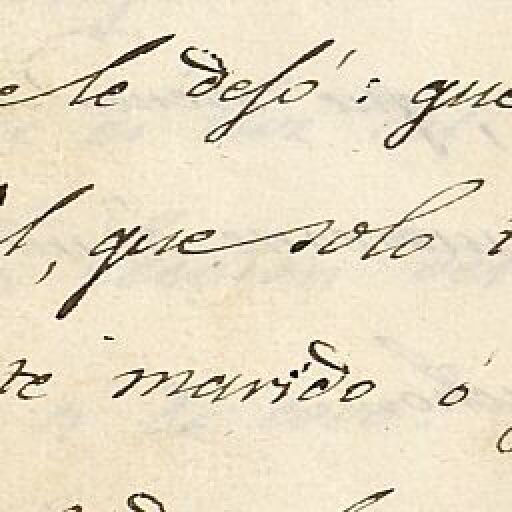 e le dejó: que
l, que solo
te marido ó